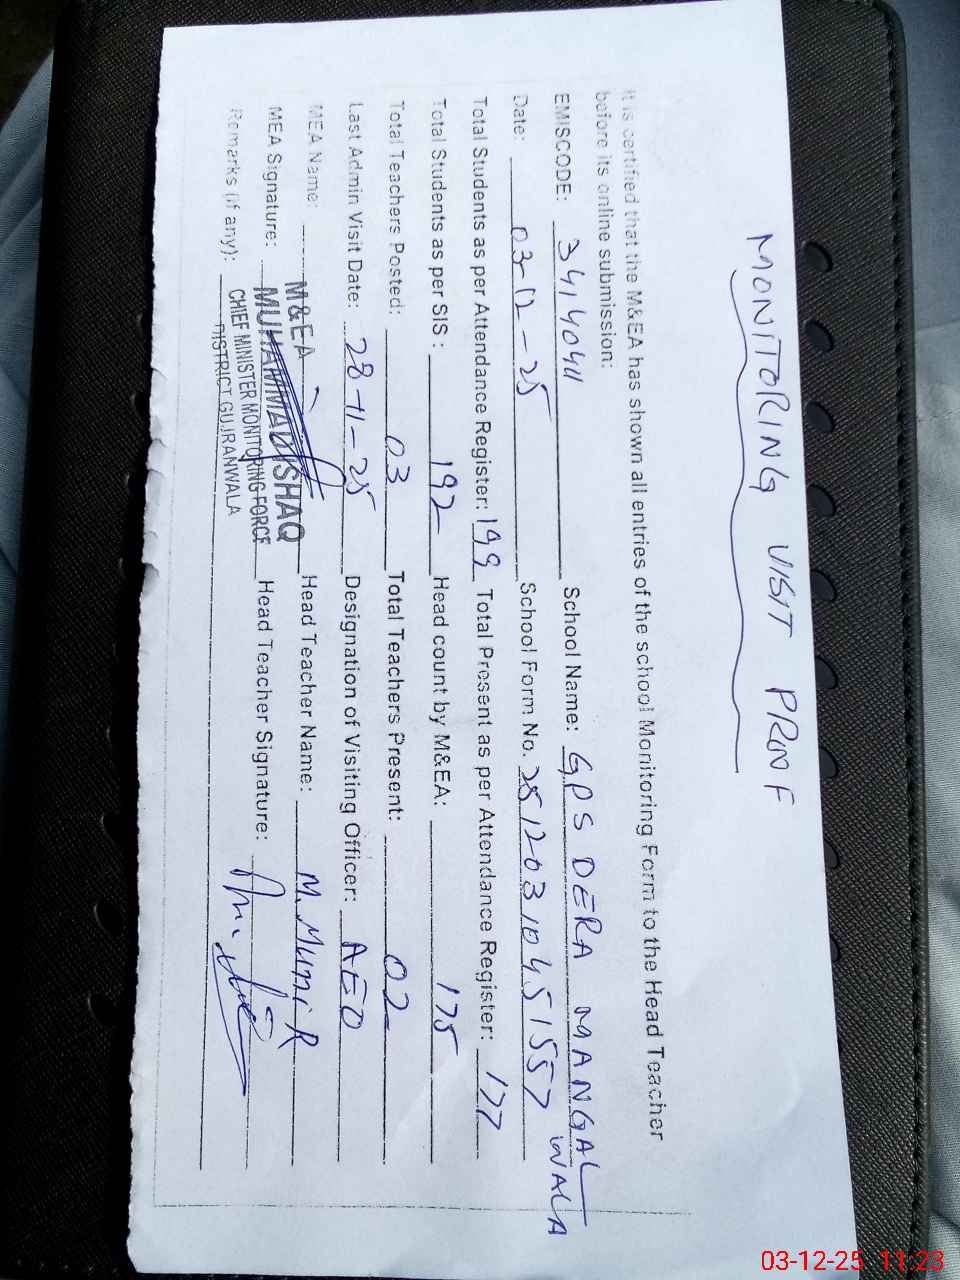 MONITORING VISIT PROOF
It is certified that the M&EA has shown all entries of the school Monitoring Form to the Head Teacher
before its online submission:
EMISCODE: 34140411 School Name: GPS DERA MANGAL WALA
Date: 03-12-25 School Form No. 25120310451557
Total Students as per Attendance Register: 199 Total Present as per Attendance Register: 177
Total Students as per SIS: 192 Head count by M&EA: 175
Total Teachers Posted: 03 Total Teachers Present: 02
Last Admin Visit Date: 28-11-25 Designation of Visiting Officer: AEO
MEA Name: Head Teacher Name: M. Munir
MEA Signature: Head Teacher Signature:
Remarks (if any):
M&EA
MUHAMMAD ISHAQ
CHIEF MINISTER MONITORING FORCE
DISTRICT GUJRANWALA
03-12-25 11:23